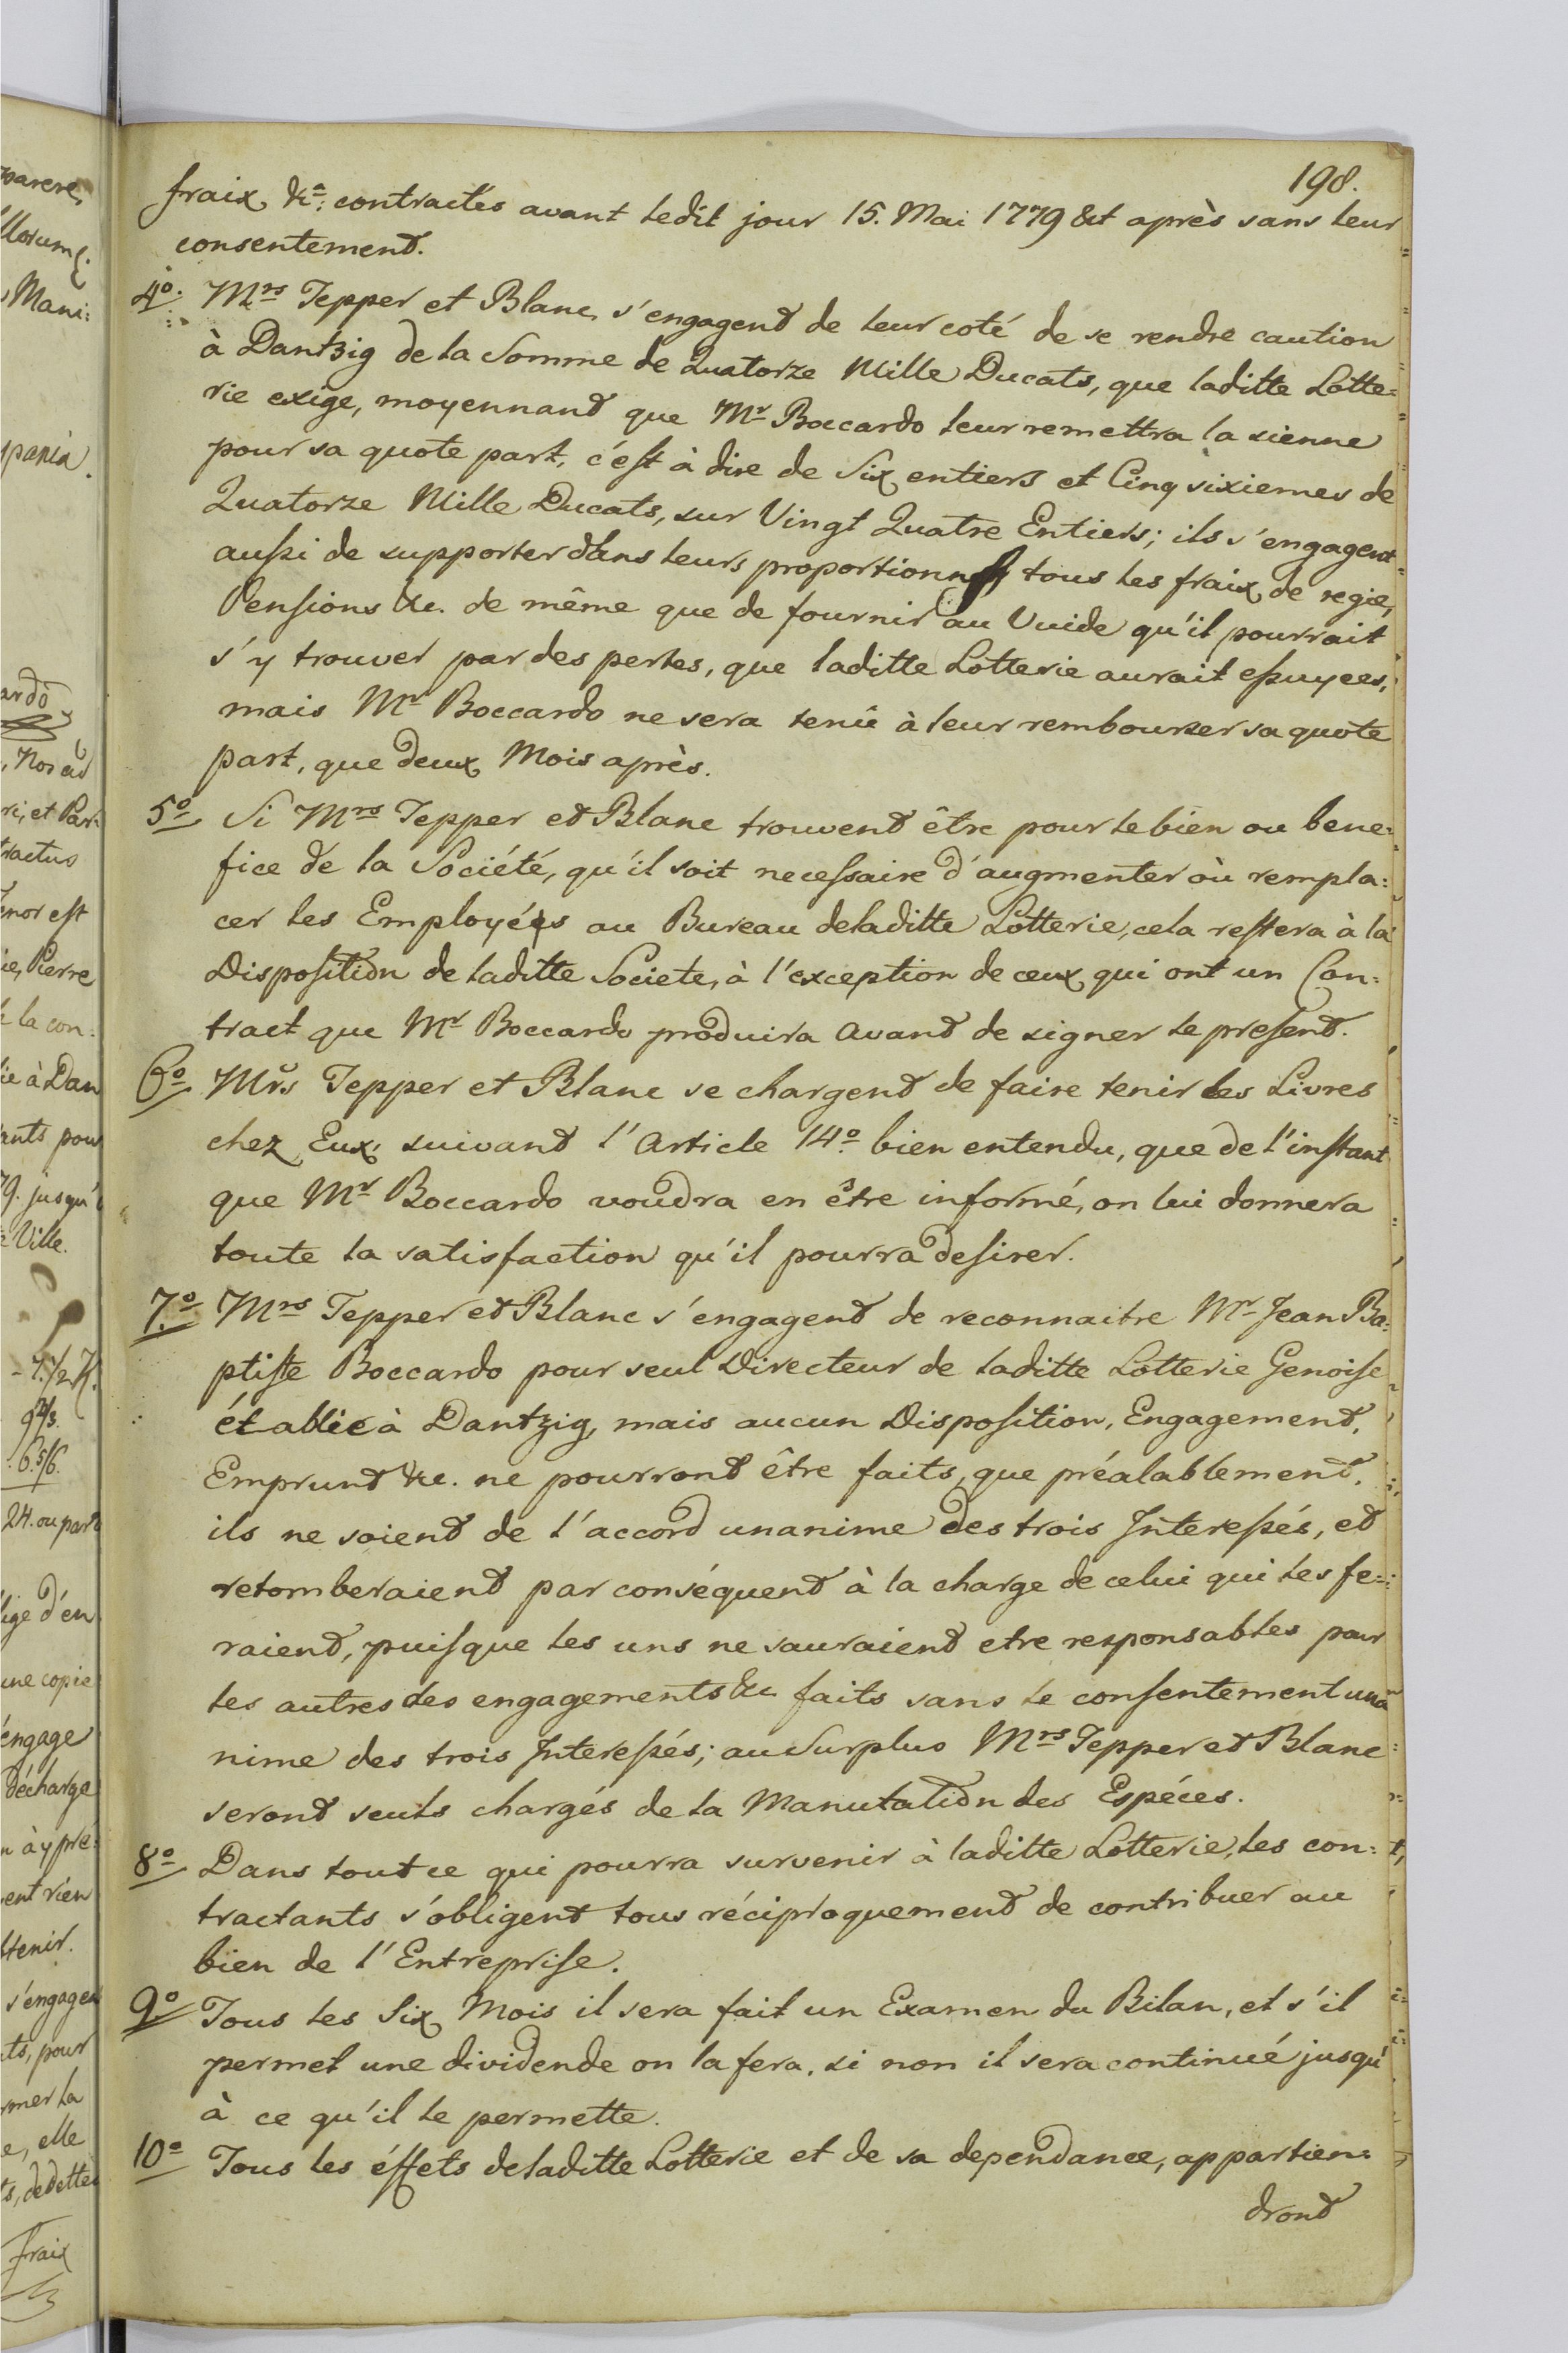 198.
fraix, &cª: contractés avant ledit jour 15. Mai 1779 &t après sans leur
consentement.
4º. Mrs Tepper et Blanc, s'engagent de leur coté de se rendre caution
à Dantzig de la Somme de Quatorze Mille Ducats, que laditte Lotte=
rie exige, moyennant que Mr Boccardo leur remettra la sienne
pour sa quote part, c'est à dire de Six entiers et Cinq sixiemes de
Quatorze Mille Ducats, sur Vingt Quatre Entiers; ils s'engagent
aussi de supporter dans leurs proportionn tous les fraix de regie,
Pensions &c. de même que de fournir au Vuide qu'il pourrait
s'y trouver par des pertes, que laditte Lotterie aurait essuyees,
mais Mr Boccardo ne sera tenû à leur rembourser sa quote
part, que deux Mois après.
5º Si Mrs Tepper et Blanc trouvent être pour le bien ou bene=
fice de la Société, qu'il soit necessaire d'augmenter où rempla=
cer les Employées au Bureau de laditte Lotterie, cela restera à la
Disposition de laditte Societe, à l'exception de ceux qui ont un Con=
tract que Mr Boccardo produira avant de signer le present.
6º Mrs Tepper et Blanc se chargent de faire tenir les Livres
chez Eux, suivant l'Article 14º bien entendu, que de l'instant
que Mr Boccardo voudra en être informé, on lui donnera
toute la satisfaction qu'il pourra desirer.
7º Mrs Tepper et Blanc s'engagent de reconnaitre Mr Jean Ba=
ptiste Boccardo pour seul Directeur de laditte Lotterie Genoise
établie à Dantzig, mais aucun Disposition, Engagement,
Emprunt &c. ne pourront être faits, que préalablement,
ils ne soient de l'accord unanime des trois Interessés, et
retomberaient par conséquent à la charge de celui qui les fe=
raient, puisque les uns ne sauraient etre responsables pour
les autres des engagements &c faits sans le consentement una
nime des trois Interessés; au Surplus Mrs Tepper et Blanc
seront seuls chargés de la Manutation des Espéces.
8º Dans tout ce qui pourra survenir à laditte Lotterie, les con=
tractants s'obligent tous réciproquement de contribuer au
bien de l'Entreprise.
9º Tous les Six Mois il sera fait un Examen du Bilan, et s'il
permet une dividende on la fera, si non il sera continué jusqu'
à ce qu'il le permette.
10º Tous les éffets de laditte Lotterie et de sa dependance, appartien=
dront